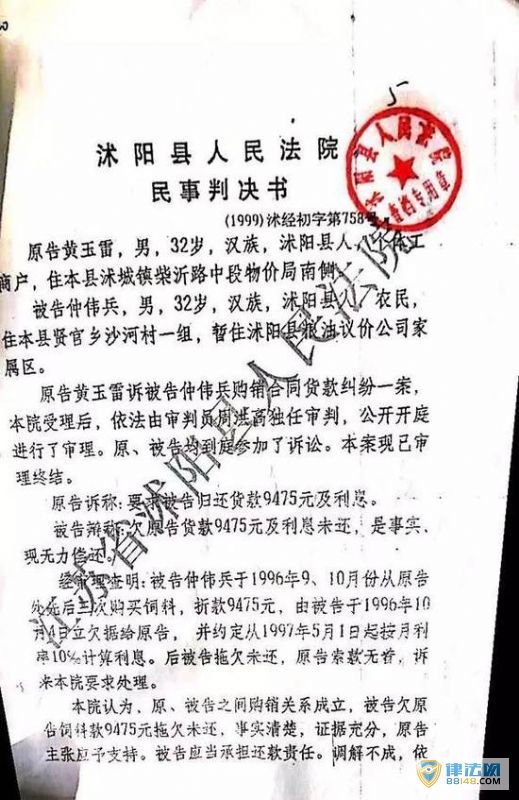 沭阳县人民法院
民事判决书
(1999)沭经初字第758号
原告黄玉雷，男，32岁，汉族，沭阳县人，个体工
商户，住本县沭城镇柴沂路中段物价局南侧。
被告仲伟兵，男，32岁，汉族，沭阳县人，农民，
住本县贤官乡沙河村一组，暂住沭阳县粮油议价公司家
属区。
原告黄玉雷诉被告仲伟兵购销合同货款纠纷一案，
本院受理后，依法由审判员周洪高独任审判，公开开庭
进行了审理。原、被告均到庭参加了诉讼。本案现已审
理终结。
原告诉称：要求被告归还货款9475元及利息。
被告辩称：欠原告货款9475元及利息未还，是事实、
现无力偿还。
经审理查明：被告仲伟兵于1996年9、10月份从原告
处先后三次购买饲料，折款9475元，由被告于1996年10
月4日立欠据给原告，并约定从1997年5月1日起按月利
率10‰计算利息。后被告拖欠未还，原告索款无着，诉
来本院要求处理。
本院认为、原、被告之间购销关系成立，被告欠原
告饲料款9475元拖欠未还，事实清楚，证据充分，原告
主张应予支持。被告应当承担还款责任。调解不成，依
沭阳县人民法院
查档专用章
江苏省沭阳县人民法院
律法网
8848.com